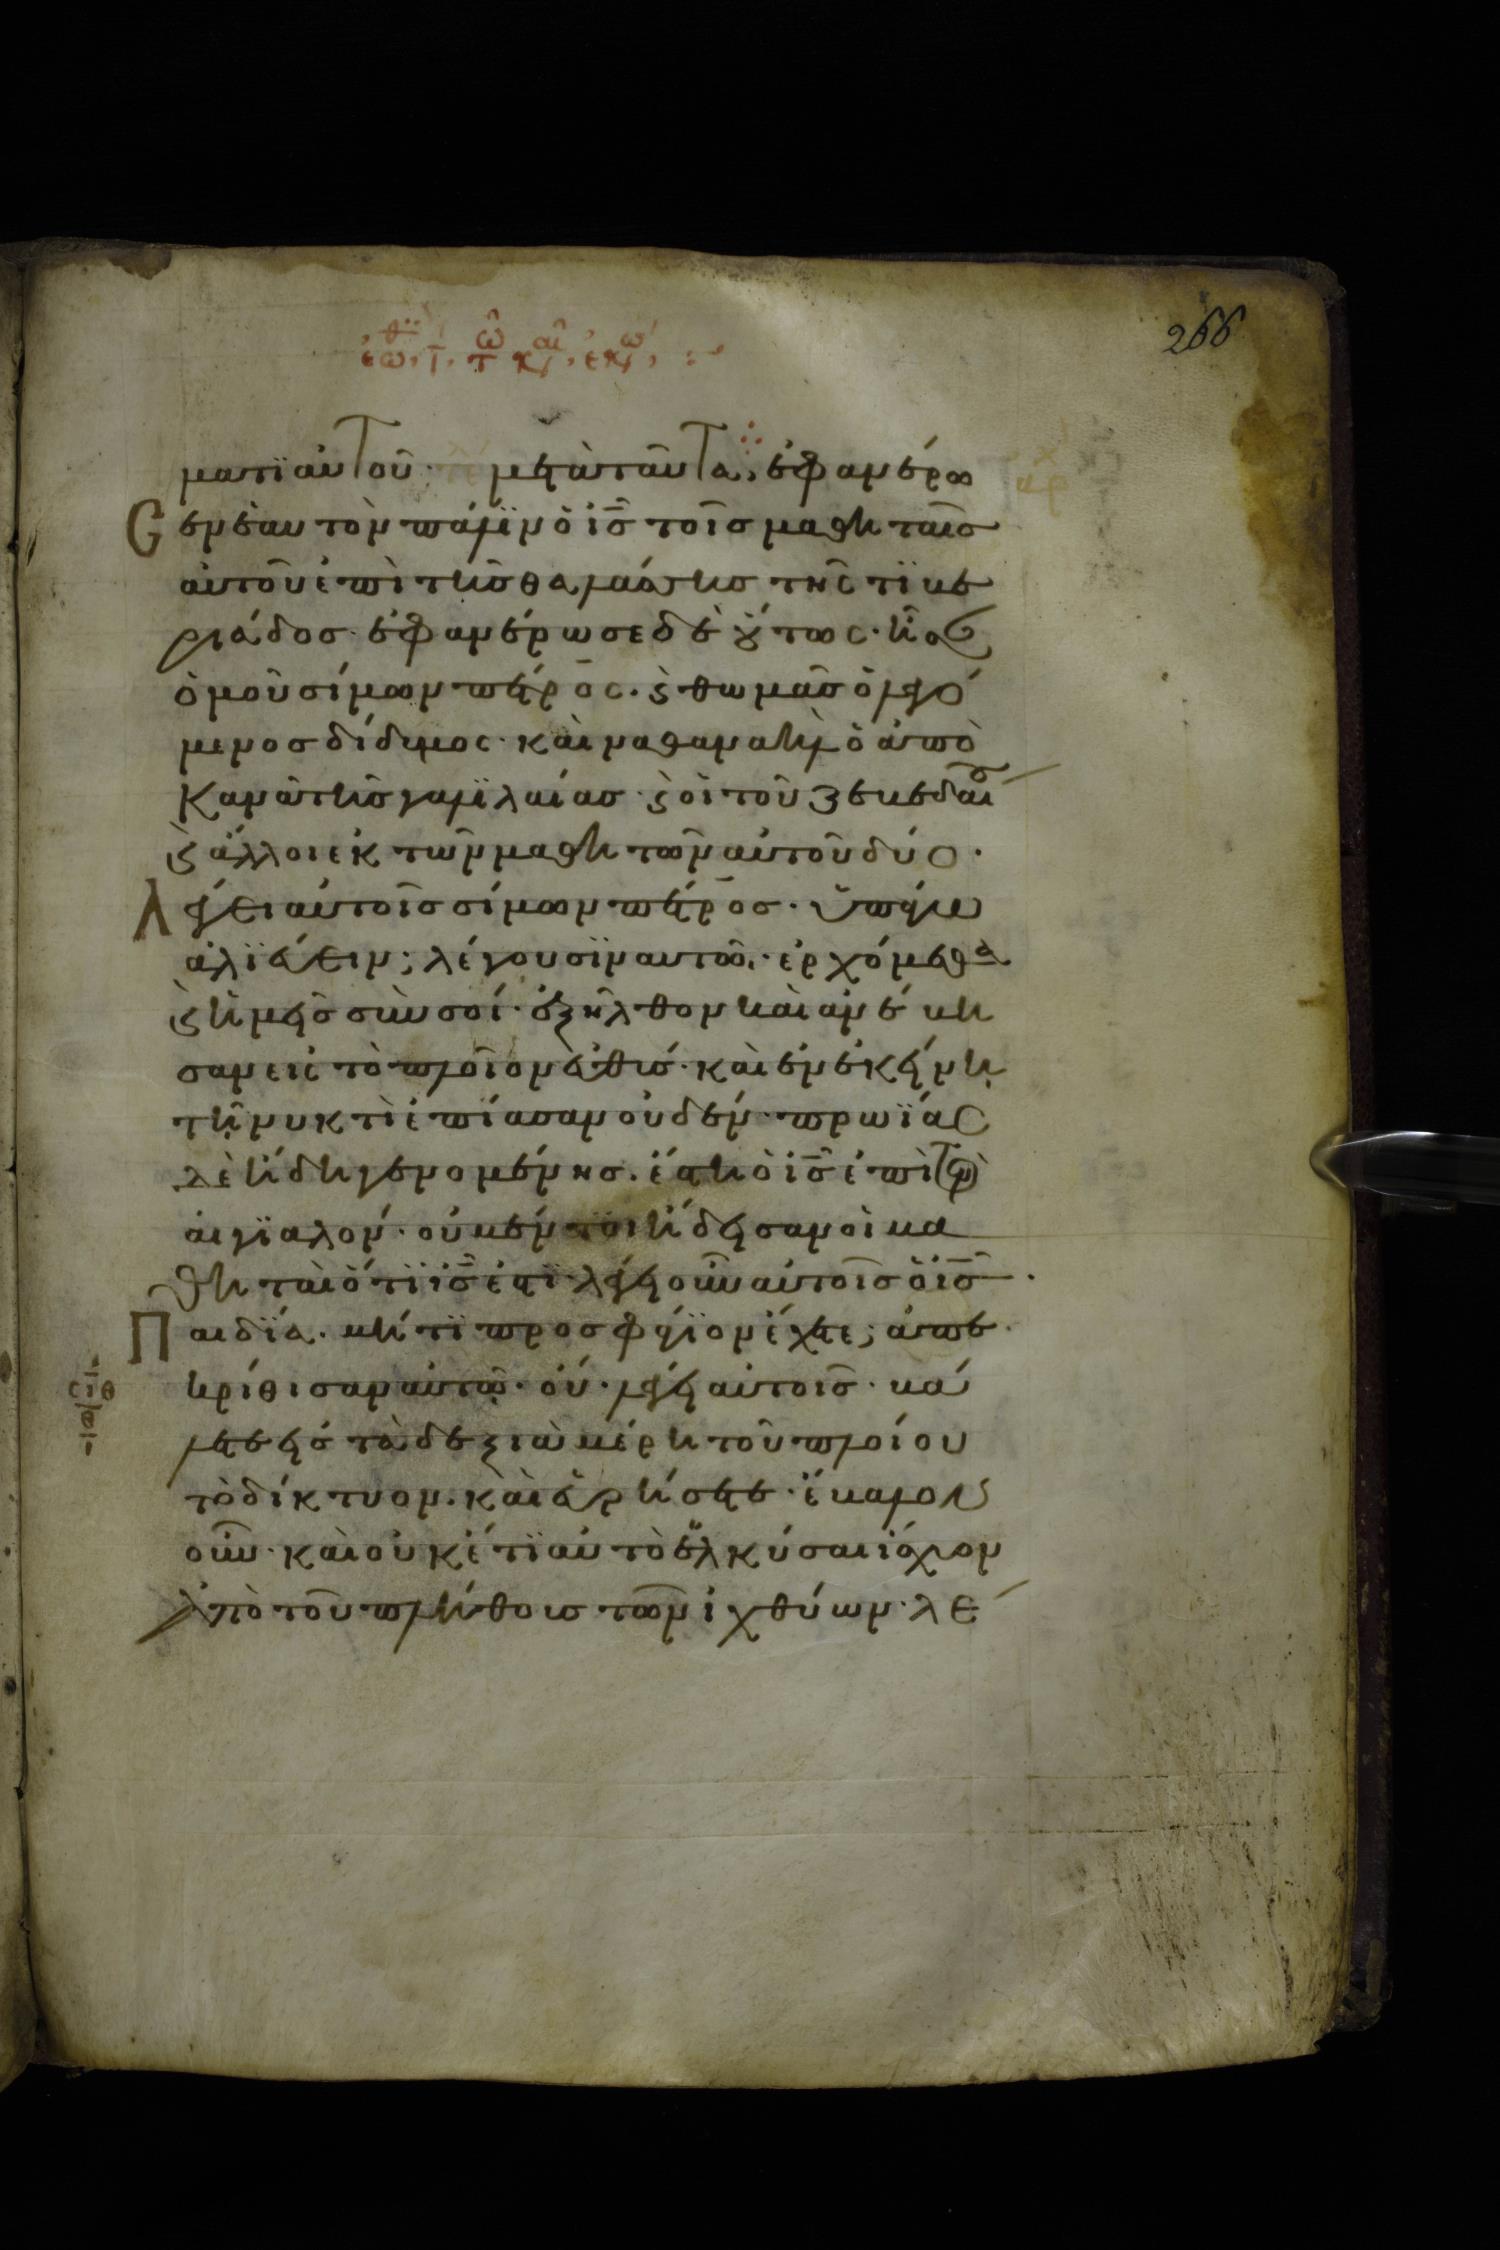 266
ματϊ αὐτοῦ · μετὰ ταῦτα, ἐφανέρω
σεν ἑαυτὸν πάλϊν ὁ ις τοῖς μαθηταῖς
αὐτοῦ ἐπὶ τῆς θαλάσσης τῆς τϊβε
ριάδος · ἐφανέρωσε δὲ οὕτως · ἦσαν
ὁμοῦ σίμων πέτρος · ϛ θωμᾶς ὁ λεγό
μενος δίδυμος · καὶ ναθαναὴλ ὁ ἀπὸ
κανᾶ τῆς γαλϊλαίας · ϛ οἱ τοῦ ζεβεδαί
ϛ ἄλλοι ἐκ τῶν μαθητῶν αὐτοῦ δύο ·
Λέγει αὐτοῖς σίμων πέτρος · ὑπάγω
ἁλϊεύειν; λέγουσϊν αυτῶ · ἐρχόμεθα
ϛ ἡμεῖς σὺν σοί · ἐξῆλθον καὶ ἀνέβη
σαν εἰς τὸ πλοῖον εὐθύς · καὶ ἐν ἐκείνη
τῇ νυκτὶ ἐπίασαν οὐδέν · πρωϊας
δὲ ἤδη γενομένης · ἔστη ὁ ις ἐπὶ τὸν
αἰγϊαλόν · οὐ μέν τοι ἤδεισαν οἱ μα
θηταὶ ὅτϊ ις ἐστϊ · λέγει οὖν αὐτοῖς ὁ ις ·
Παιδϊά · μή τϊ προσφάγϊον ἔχετε; ἀπε
κρίθισαν αὐτῷ · οὔ · λέγει αὐτοῖς · βά
λετε εἰς τὰ δεξιὰ μέρη τοῦ πλοίου
τὸ δίκτυον · καὶ εὑρήσετε · ἔβαλον
οὖν · καὶ οὐκέτϊ αὐτὸ ἑλκύσαι ἴσχυον
ἀπὸ τοῦ πλήθους τῶν ἰχθύων · λέ
σιθ